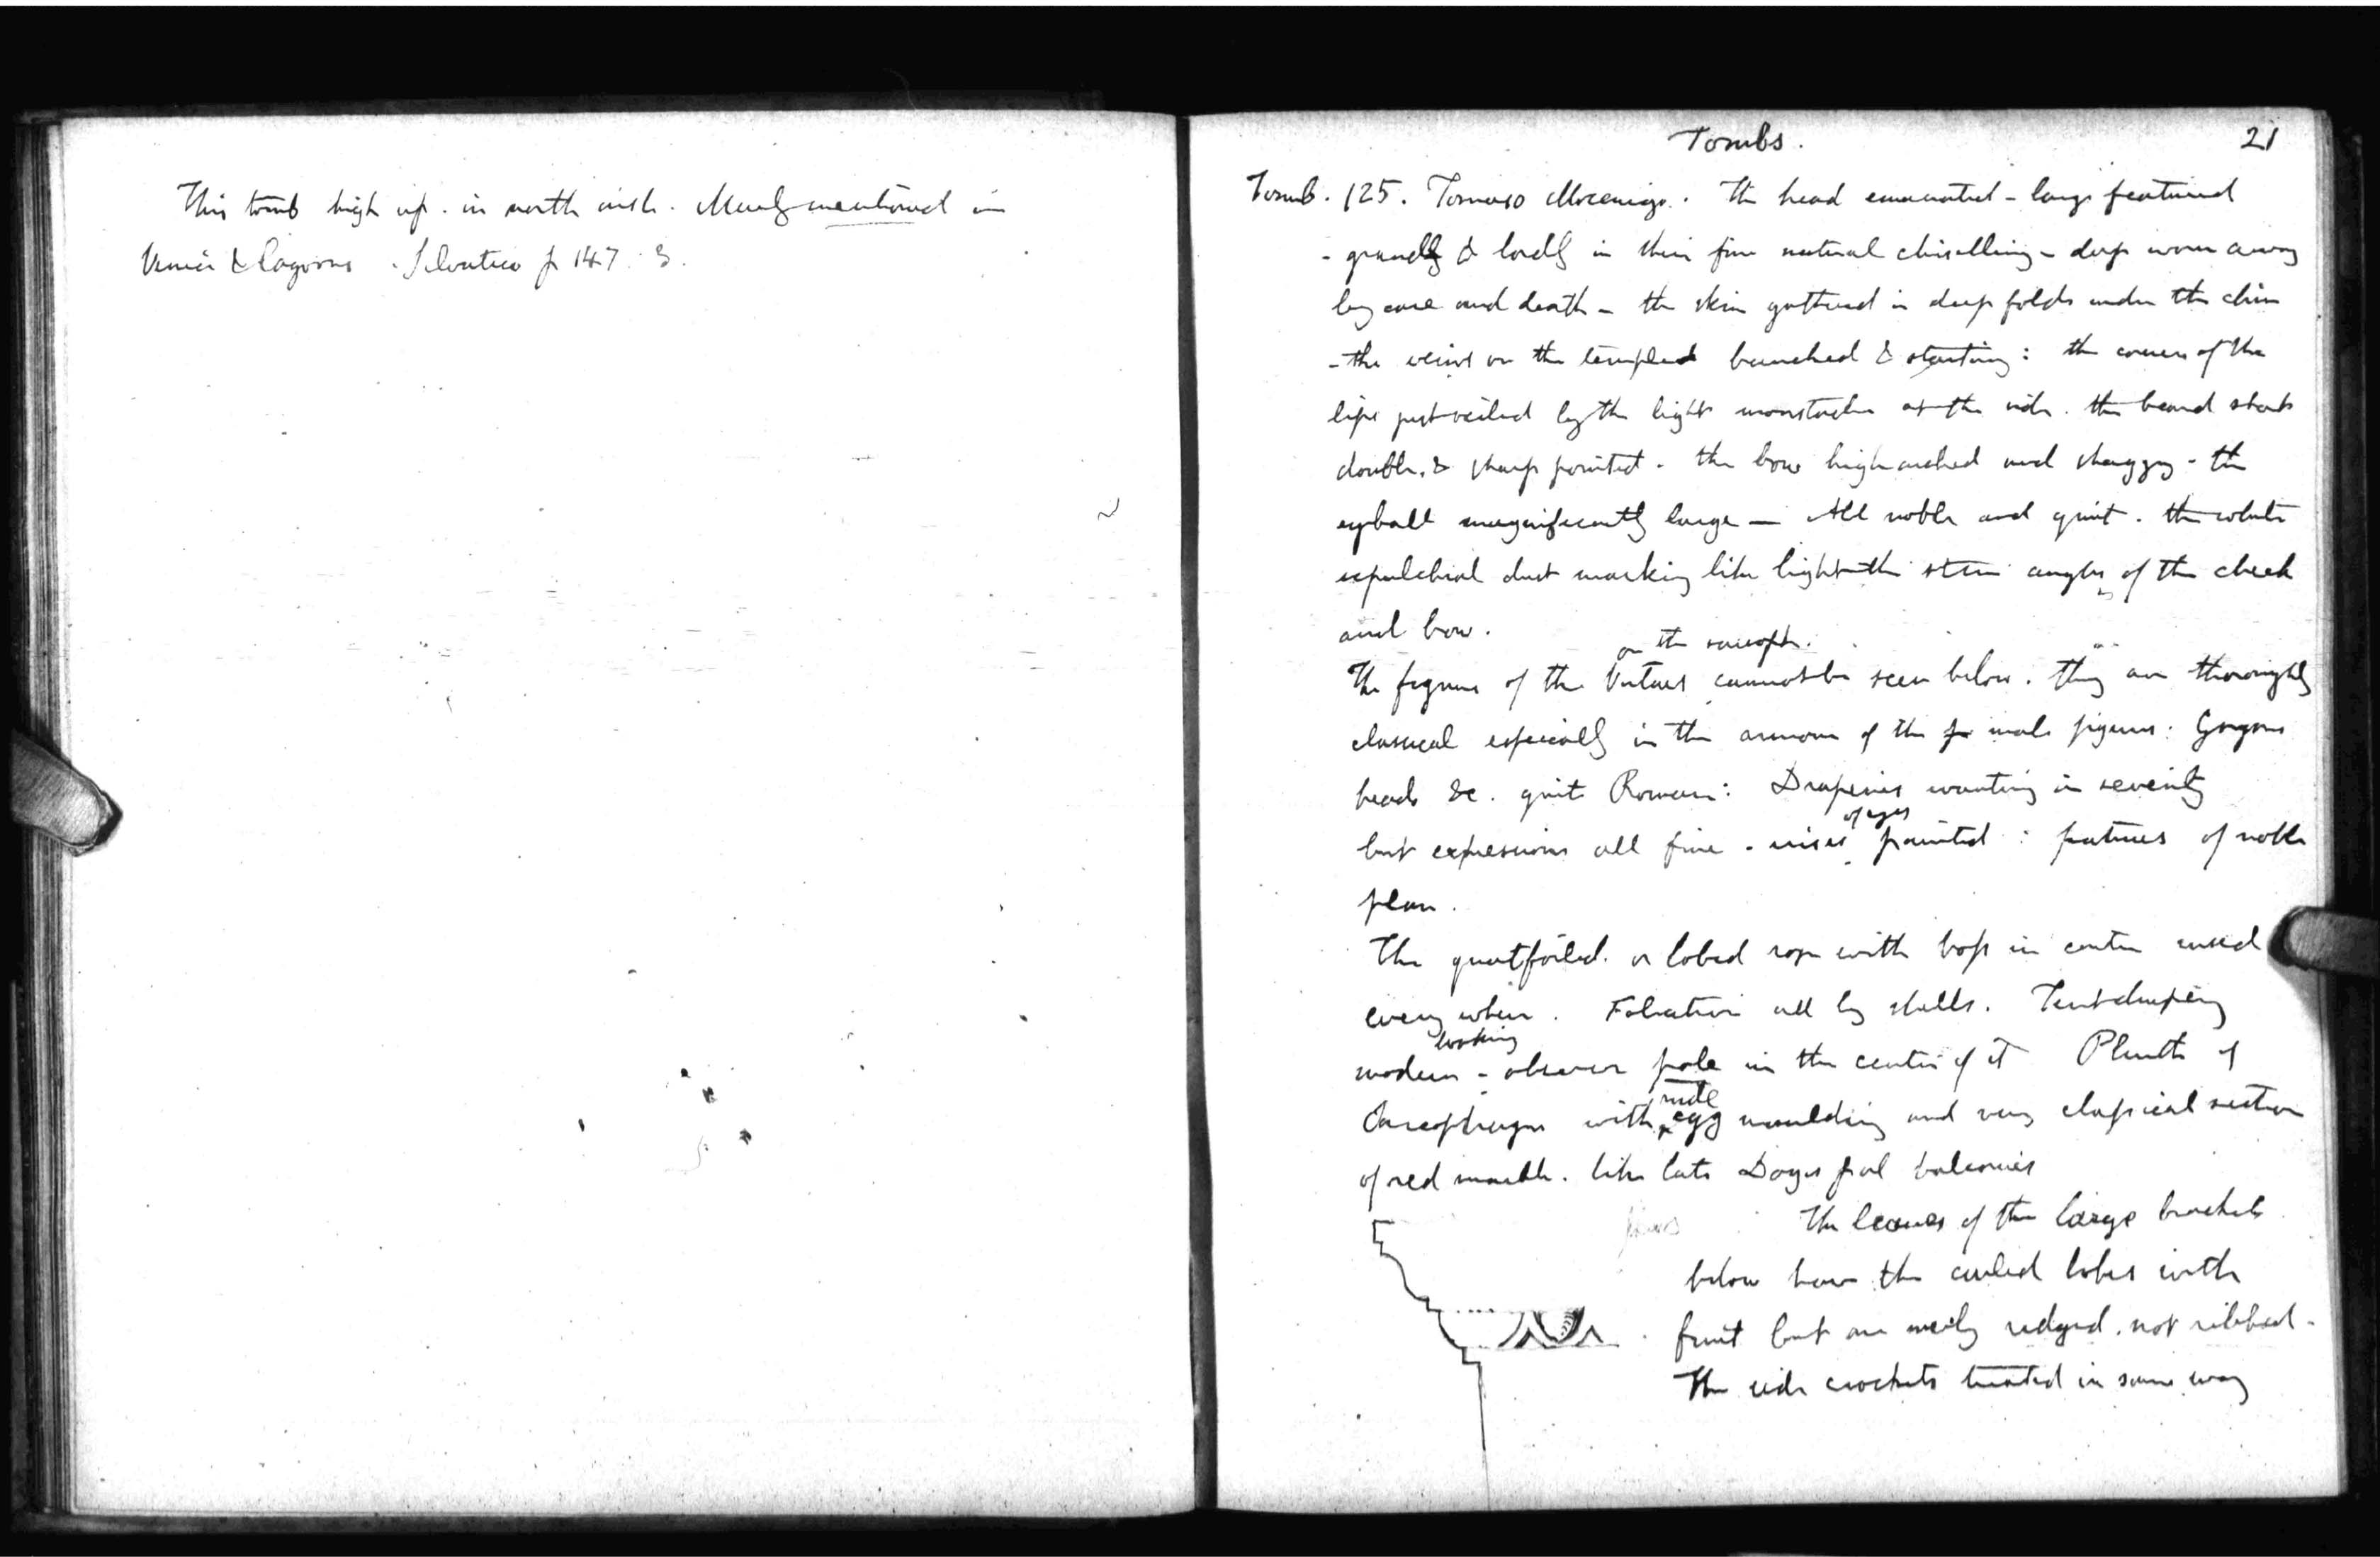 This tomb high up. in north aisle. Merely mentioned in
Venice & Lagoons. Selvatico p 147. 3.
Tombs. 21
Tomb. 125. Tomaso Mocenigo. The head emaciated - large featured
- grandly & lordly in their fine natural chiselling - deep worn away
by care and death - the skin gathered in deep folds under the chin
- the veins on the temples branched & starting: the corners of the
lips just veiled by the light moustache at the side. the beard short
double. & sharp pointed. the brow high arched and shaggy - the
eyeball magnificently large — All noble and quiet. the white
sepulchral dust marking like light the stern angles of the cheek
and brow.
The figures of the Virtues on the sarcoph. cannot be seen below. they are thoroughly
classical especially in the armour of the male figures: Gorgons
heads &c. quite Roman: Draperies wanting in severity
but expressions all fine. irises of eyes painted: features of noble
plan.
The quatrefoiled. or lobed rose with boss in centre used
every where. Foliation all by shells. Tent drapery
modern looking - observe pole in the centre of it Plinth of
Sarcophagus with rude egg moulding and very classical section
of red marble. like late Doges pal balconies
The leaves of the large brackets
below have the curled lobes with
fruit but are merely ridged. not ribbed -
The side crockets treated in same way